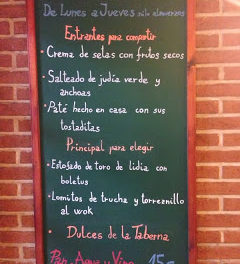 De Lunes a Jueves sólo almuerzos
Entrantes para compartir
• Crema de setas con frutos secos
• Salteado de judía verde y
anchoas
• Paté hecho en casa con sus
tostaditas
Principal para elegir
• Estofado de toro de lidia con
boletus
• Lomitos de trucha y torreznillo
al wok
• Dulces de la Taberna
Pan, Agua y Vino 15€